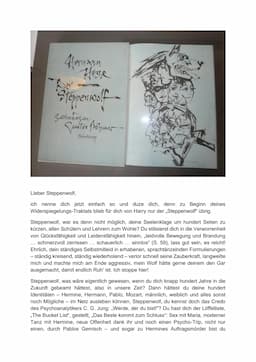 Hermann
Hesse
Der
Steppenwolf
Zeichnungen
Gunter Böhmer
Lieber Steppenwolf,
ich nenne dich jetzt einfach so und duze dich, denn zu Beginn deines
Widerspiegelungs-Traktats bleib für dich von Harry nur der „Steppenwolf“ übrig.
Steppenwolf, was es denn nicht möglich, deine Seelenklage um hundert Seiten zu
kürzen, aller Schülern und Lehrern zum Wohle? Du stilisierst dich in die Verworrenheit
von Glücksfähigkeit und Leidensfähigkeit hinein, „leidvolle Bewegung und Brandung
… schmerzvoll zerrissen … schauerlich … sinnlos“ (S. 59), lass gut sein, es reicht!
Ehrlich, dein ständiges Selbstmitleid in erhabenen, sprachtänzelnden Formulierungen
– ständig kreisend, ständig wiederholend – verlor schnell seine Zauberkraft, langweilte
mich und machte mich am Ende aggressiv, mein Wolf hätte gerne deinem den Gar
ausgemacht, damit endlich Ruh’ ist. Ich stoppe hier!
Steppenwolf, was wäre eigentlich gewesen, wenn du dich knapp hundert Jahre in die
Zukunft gebeamt hättest, also in unsere Zeit? Dann hättest du deine hundert
Identitäten – Hermine, Hermann, Pablo, Mozart, männlich, weiblich und alles sonst
noch Mögliche – im Netz ausleben können. Steppenwolf, du kennst doch das Credo
des Psychoanalytikers C. G. Jung: „Werde, der du bist“? Du hast dich der Löffelliste,
„The Bucket List“, gestellt, „Das Beste kommt zum Schluss“: Sex mit Maria, moderner
Tanz mit Hermine, neue Offenheit dank ihr und noch einen Psycho-Trip, nicht nur
einen, durch Pablos Gemisch – und sogar zu Hermines Auftragsmörder bist du